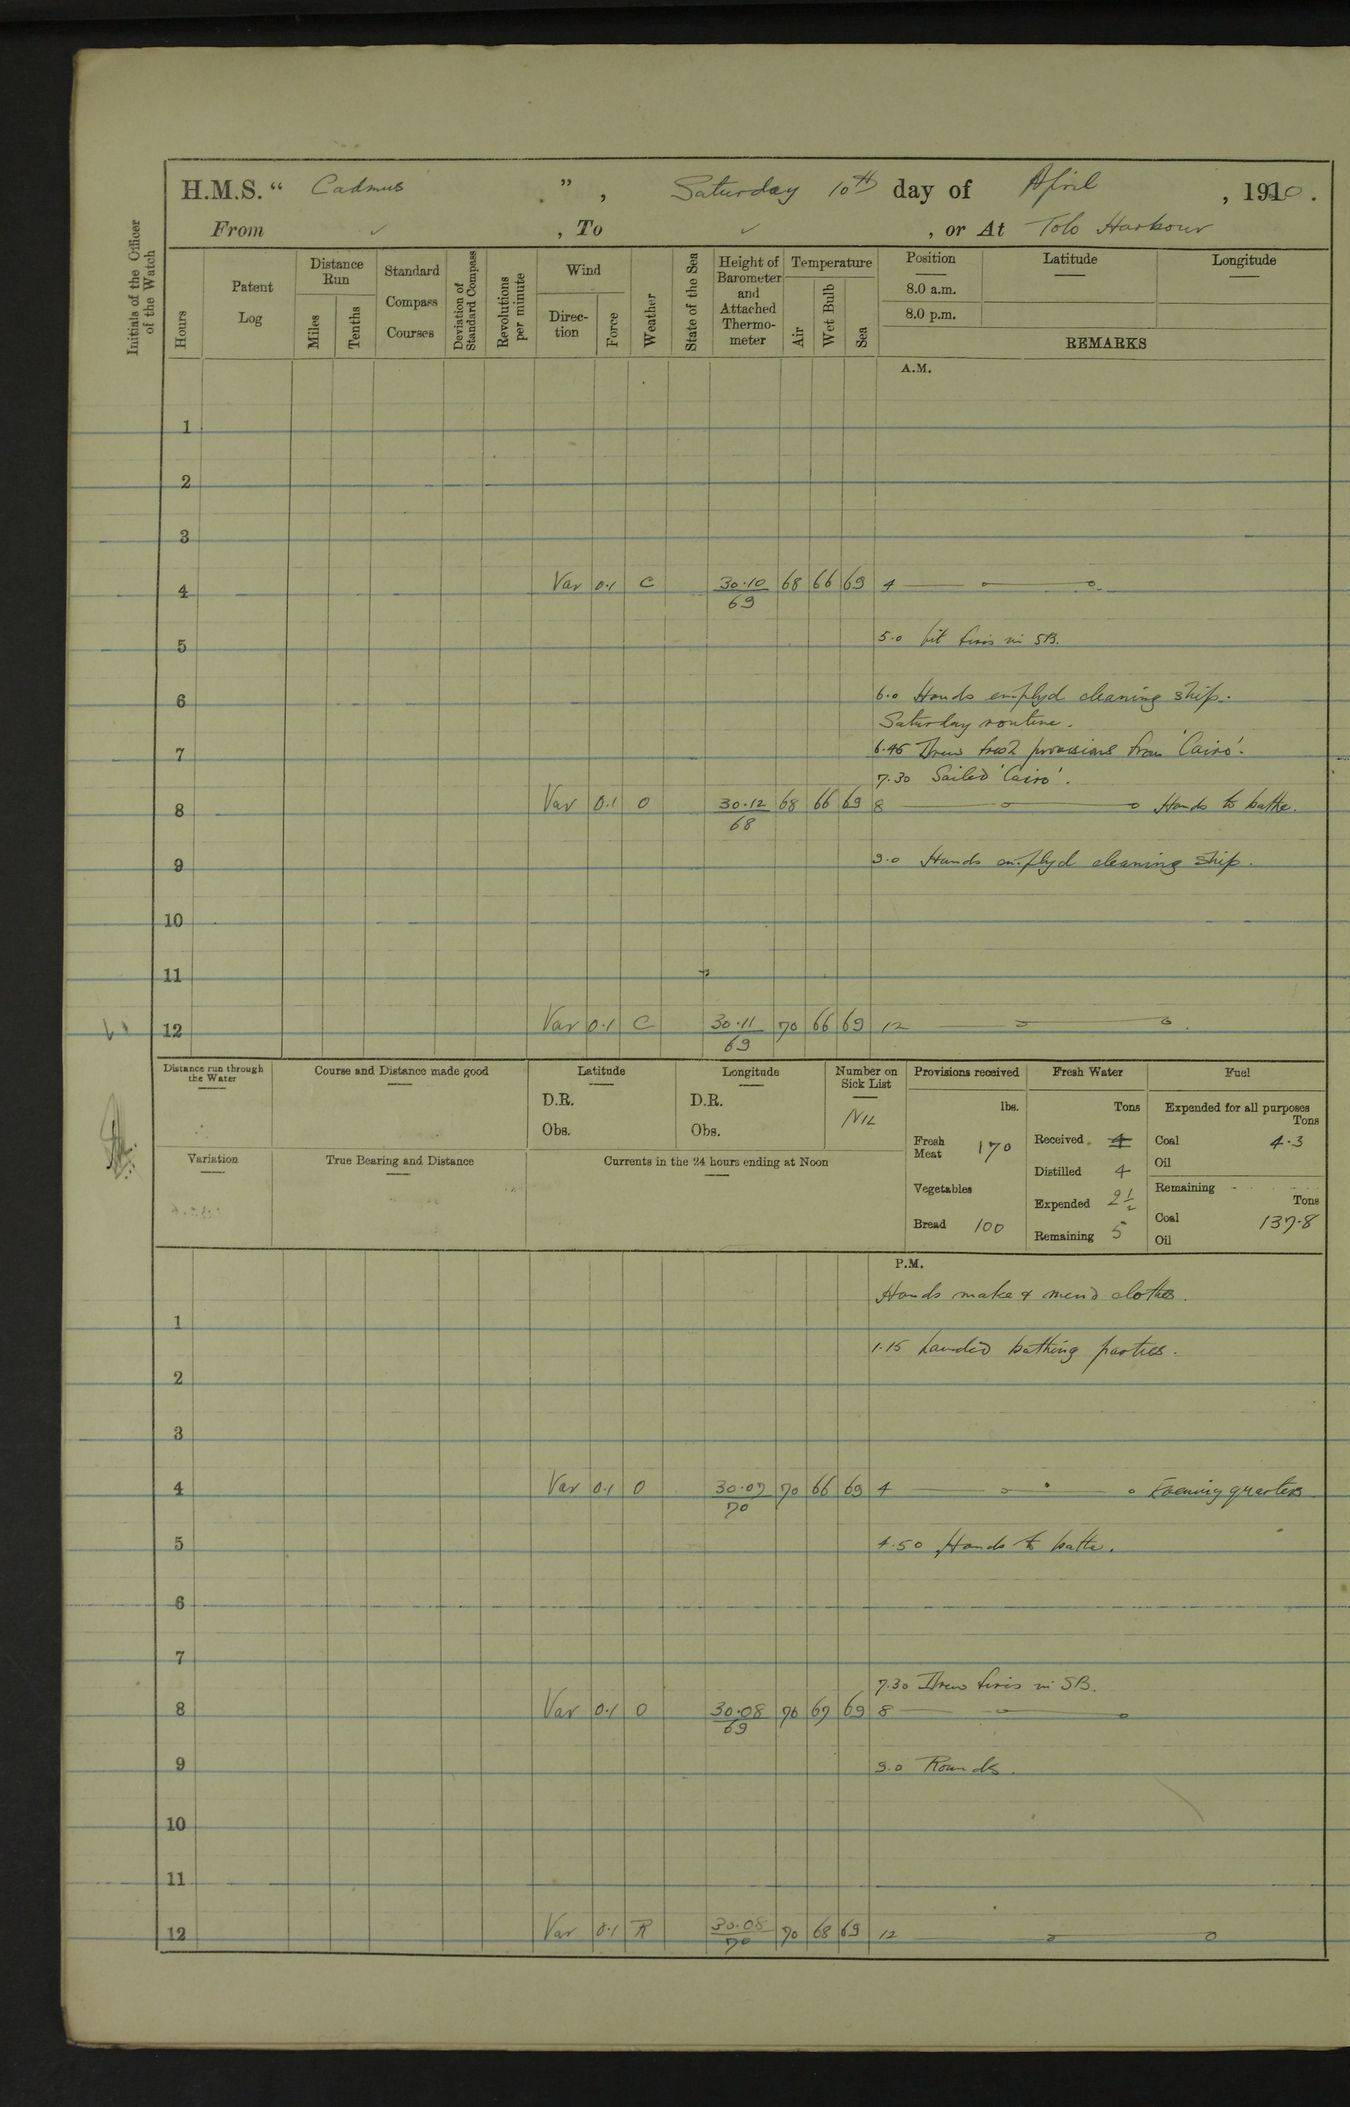 H.M.S. “ Cadmus ” , Saturday 10th day of April , 1920 .
From ✓ , To ✓ , or At Tolo Harbour
Initials of the Officer of the Watch
Hours
Patent Log
Distance Run
Miles
Tenths
Standard Compass Courses
Deviation of Standard Compass
Revolutions per minute
Wind
Direction
Force
Weather
State of the Sea
Height of Barometer and Attached Thermometer
Temperature
Air
Wet Bulb
Sea
Position
Latitude
Longitude
8.0 a.m.
8.0 p.m.
REMARKS
A.M.
1
2
3
4 Var 0.1 C 30.10/69 68 66 69 4
5 5.0 Lit fires in SB.
6 6.0 Hands employd cleaning ship.
Saturday routine.
7 6.45 Drew fresh provisions from 'Cairo'.
7.30 Sailed 'Cairo'.
8 Var 0.1 O 30.12/68 68 66 69 8 Hands to bathe.
9 9.0 Hands employd cleaning ship.
10
11
12 Var 0.1 C 30.11/69 70 66 69 12
Distance run through the Water
Course and Distance made good
Latitude
D.R.
Obs.
Longitude
D.R.
Obs.
Number on Sick List
NIL
Variation
True Bearing and Distance
Currents in the 24 hours ending at Noon
Provisions received
lbs.
Fresh Meat 170
Vegetables
Bread 100
Fresh Water
Tons
Received 4
Distilled 4
Expended 2½
Remaining 5
Fuel
Expended for all purposes
Tons
Coal 4.3
Oil
Remaining
Tons
Coal 137.8
Oil
P.M.
Hands make & mend clothes.
1
1.15 Landed bathing parties.
2
3
4 Var 0.1 O 30.07/70 70 66 69 4 Evening quarters
5 4.50 Hands to bathe.
6
7
7.30 Drew fires in SB.
8 Var 0.1 O 30.08/69 70 67 69 8
9 9.0 Rounds.
10
11
12 Var 0.1 R 30.08/70 70 68 69 12